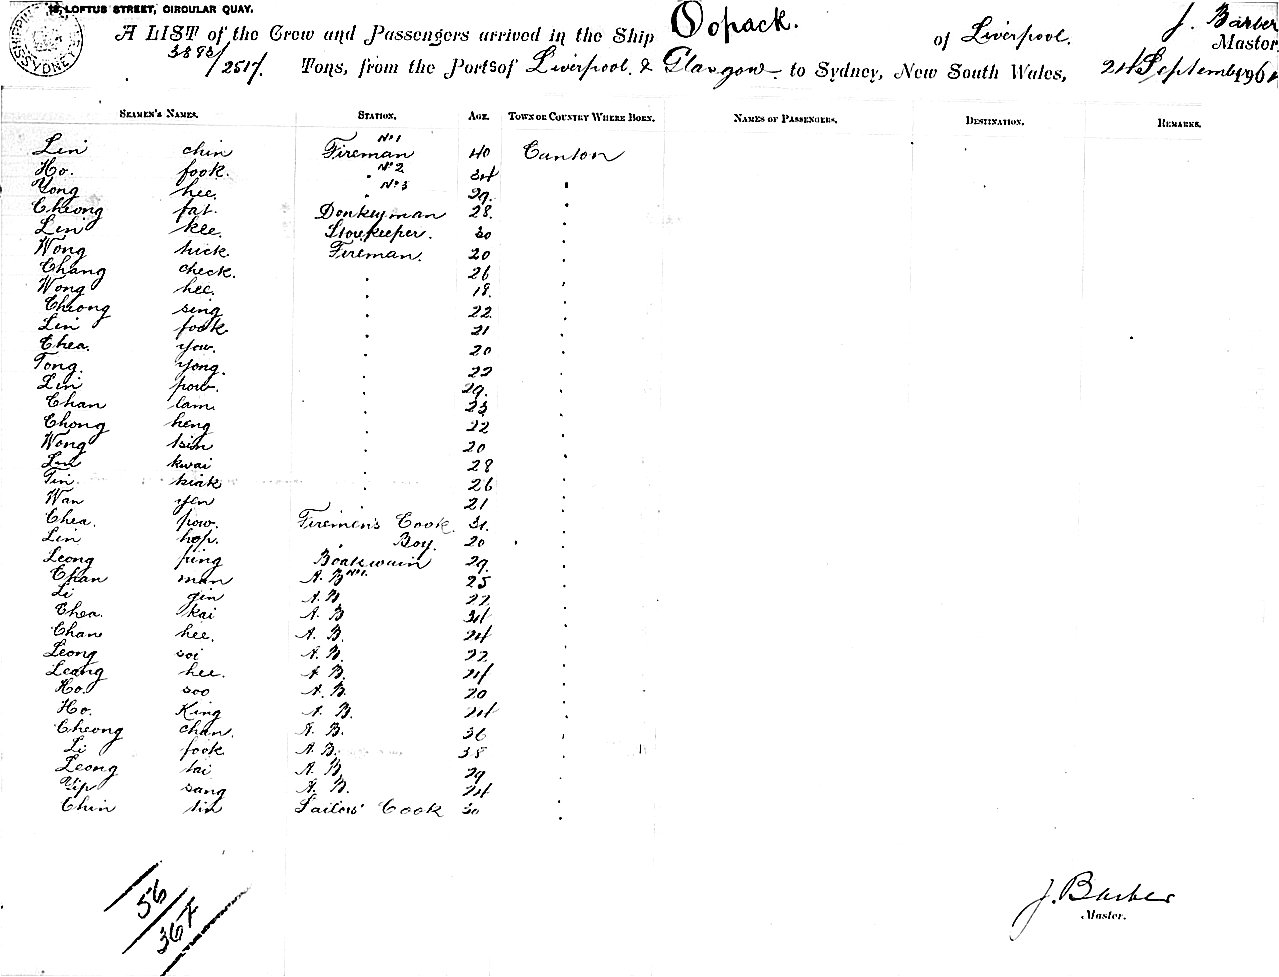 15, LOFTUS STREET, CIRCULAR QUAY.
SHIPPING SYDNEY
A LIST of the Crew and Passengers arrived in the Ship Oopack. of Liverpool. J. Barber Master,
3893/2517. Tons, from the Ports of Liverpool. & Glasgow to Sydney, New South Wales, 24 September 196
SEAMEN'S NAMES. STATION. AGE. TOWN OR COUNTRY WHERE BORN. NAMES OF PASSENGERS. DESTINATION. REMARKS.
Lin chin Fireman No 1 40 Canton
Ho. fook. " No 2 34 "
Yong hee. " No 3 29. "
Cheong fat. Donkeyman 28. "
Lin kee. Storekeeper. 30 "
Wong hick. Fireman. 20 "
Chang check. " 26 "
Wong hee. " 18. "
Cheong sing " 22 "
Lin fook " 21 "
Chea. yow. " 20 "
Tong. yong. " 22 "
Lin pow. " 29. "
Chan lam " 23 "
Chong heng " 22 "
Wong tsin " 20 "
Lin kwai " 28 "
Tin. kiak " 26 "
Wan yen " 21 "
Chea. pow. Firemen's Cook. 31. "
Lin hop. " Boy. 20 "
Leong ping Boatswain 29. "
Chan man A. B No 1. 25 "
Li gin A. B 22 "
Chea. kai A. B 34 "
Chan hee. A. B. 24 "
Leong soi A. B. 22 "
Leang hee. A B. 24 "
Ho. soo A. B. 20 "
Ho. King A. B. 24 "
Cheong chan. A. B. 36 "
Li fook A B. 38 "
Leong tai A. B. 29 "
Yip sang A. B. 24 "
Chin tin Sailors' Cook 30 "
56
367
J. Barber
Master.